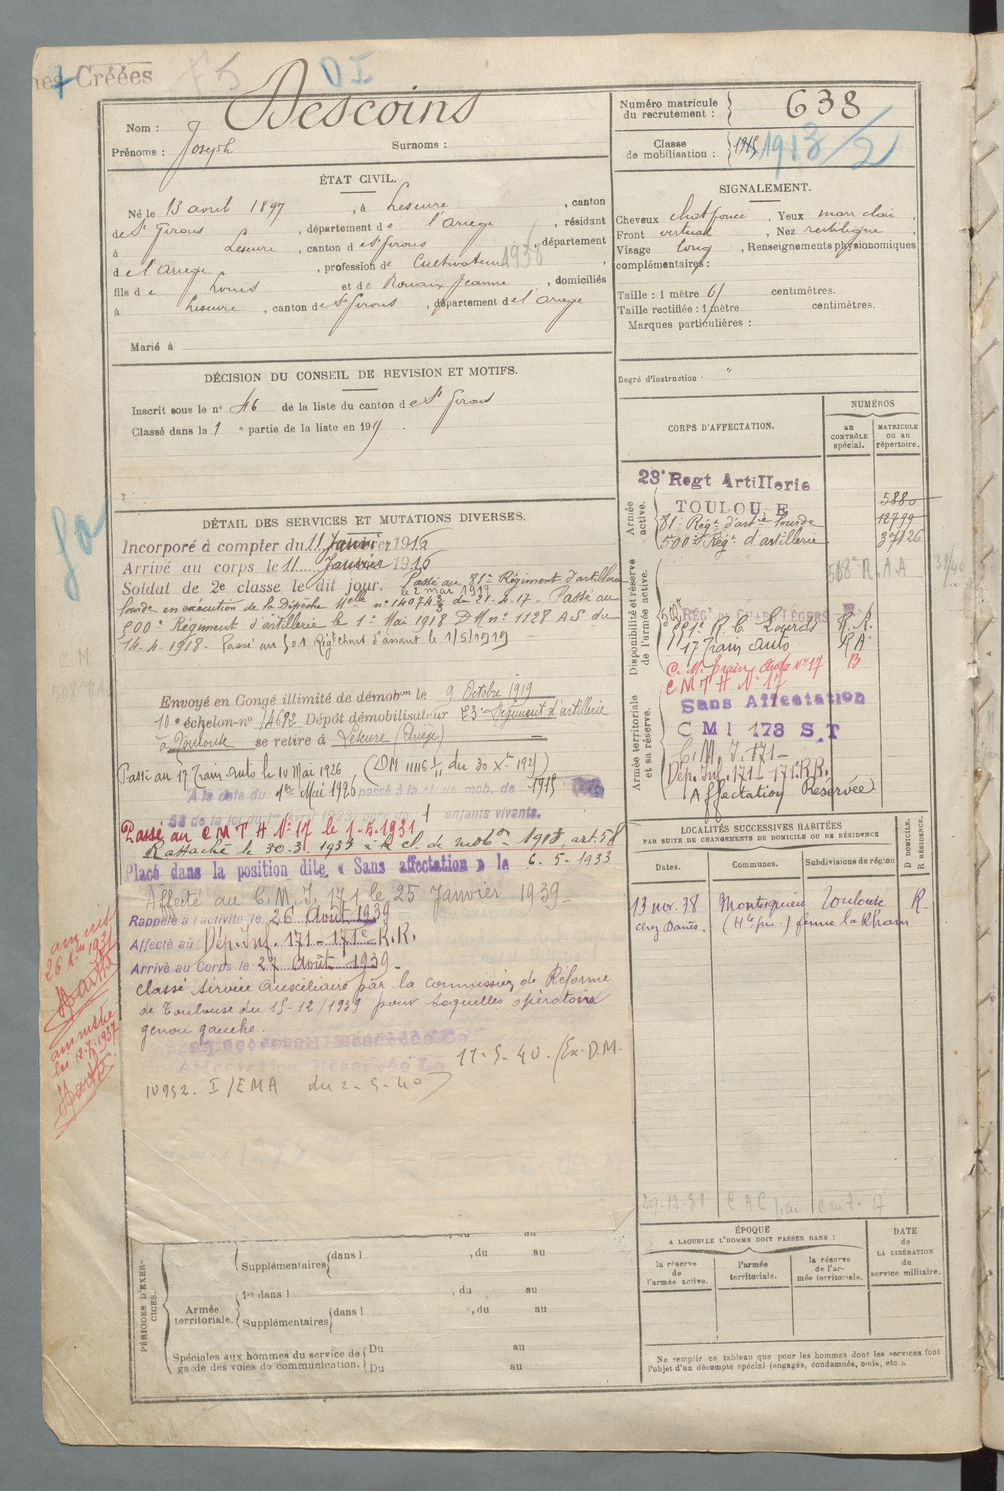 Créées
DI
Nom : Descoins
Prénoms : Joseph Surnoms :
Numéro matricule du recrutement : 638
Classe de mobilisation : 1915 1913/2
ÉTAT CIVIL.
Né le 13 avril 1897, à Lescure, canton
de St Girons, département de l'Ariège, résidant
à Lescure, canton de St Girons, département
de l'Ariège, profession de Cultivateur 1936
fils de Louis et de Rouaix Jeanne, domiciliés
à Lescure, canton de St Girons, département de l'Ariège
Marié à
SIGNALEMENT.
Cheveux chat foncé. Yeux marr clair,
Front vertical, Nez rectiligne,
Visage long, Renseignements physionomiques
complémentaires :
Taille : 1 mètre 61 centimètres.
Taille rectifiée : 1 mètre centimètres.
Marques particulières :
Degré d'instruction "
DÉCISION DU CONSEIL DE REVISION ET MOTIFS.
Inscrit sous le n° 46 de la liste du canton de St Girons
Classé dans la 1e partie de la liste en 191
CORPS D'AFFECTATION.
NUMÉROS
au CONTRÔLE spécial.
MATRICULE OU AU répertoire.
Armée active.
23e Regt Artillerie
TOULOUSE 5880
81e Régt d'art ie lourde 12999
500e Régt d'artillerie 37126
Disponibilité et réserve de l'armée active.
508e R.A.A
RÉGt DE CHARS LÉGERS R
R. C. Lourds R. R.
17 Train Auto RA
C. M. Train Auto No 17 B
C M T H No 17
Armée territoriale et sa réserve.
Sans Affectation
C M I 173 S.T
C. M. I. 171 -
Dép. Inf. 171 - 171e R.R.
Affectation Réservée
DÉTAIL DES SERVICES ET MUTATIONS DIVERSES.
Incorporé à compter du 11 Janvier 1916
Arrivé au corps le 11 Janvier 1916
Soldat de 2e classe le dit jour. Passé au 81e Régiment d'artillerie
le 2 mai 1917
lourde en exécution de la Dépêche Mlle n° 14074 3/3 du 21-4-17 - Passé au
500e Régiment d'artillerie le 1er Mai 1918 D M n° 1128 AS du
14-4-1918. Passé au 501 Régt chars d'assaut le 1/5/1919
Envoyé en Congé illimité de démobon le 9 Octobre 1919
10e échelon-n° 14682 Dépôt démobilisateur 23e Régiment d'artillerie
à Toulouse se retire à Lescure (Ariège)
Passé au 17 Train Auto le 10 Mai 1926, (DM 11116 1/11 du 30 Xbre 1921)
A la date du 1er Mai 1926 passé à la cl. de mob. de 1915
58 de la loi du 1er Avril 1 enfants vivants.
Passé au C M T H No 17 le 1-5-1931
Rattaché le 30-3-1933 à la cl. de mobon 1913, art. 58
Placé dans la position dite « Sans affectation » le 6-5-1933
Affecté au C. M. I. 171 le 25 Janvier 1939 -
Rappelé à l'activité le 26 Août 1939
Affecté au Dép. Inf. 171 - 171e R.R.
Arrivé au Corps le 27 Août 1939 -
Classé service auxiliaire par la commission de Réforme
de Toulouse du 15-12/1939 pour séquelles opératoires
genou gauche.
Affectation Réservée Le
11-5-40. (Ex. D.M.
10952. I/EMA du 2-5-40)
amnistié
le 12.7.1937
LOCALITÉS SUCCESSIVES HABITÉES
PAR SUITE DE CHANGEMENTS DE DOMICILE OU DE RÉSIDENCE
Dates. Communes. Subdivisions de région D DOMICILE. R RÉSIDENCE.
13 nov. 38 Montesquieu Toulouse R.
chez Danès. (Hte Gne.) ferme la Kharn
29-12-31 C.A.C
ÉPOQUE
A LAQUELLE L'HOMME DOIT PASSER DANS :
DATE de LA LIBÉRATION du service militaire.
la réserve de l'armée active.
l'armée territoriale.
la réserve de l'armée territoriale.
PÉRIODES D'EXERCICES.
Supplémentaires dans l , du au
Armée territoriale.
1re dans l , du au
Supplémentaires dans l , du au
Spéciales aux hommes du service de garde des voies de communication.
Du au
Du au
Ne remplir ce tableau que pour les hommes dont les services font
l'objet d'un décompte spécial (engagés, condamnés, omis, etc.).